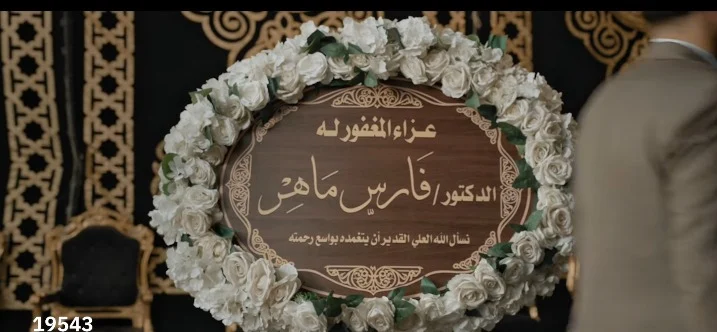 عزاء المغفور له
الدكتور/ فَارسِّ مَاهِرْ
نسأل الله العلي القدير أن يتغمده بواسع رحمته
19543